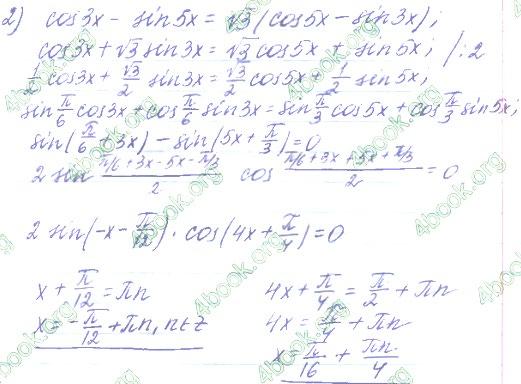 2) cos3x - sin5x = √3(cos5x - sin3x);
cos3x + √3 sin3x = √3 cos5x + sin5x; /:2
1/2 cos3x + √3/2 sin3x = √3/2 cos5x + 1/2 sin5x;
sin π/6 cos3x + cos π/6 sin3x = sin π/3 cos5x + cos π/3 sin5x;
sin(π/6 + 3x) - sin(5x + π/3) = 0
2 sin (π/6 + 3x - 5x - π/3)/2 cos (π/6 + 3x + 5x + π/3)/2 = 0
2 sin(-x - π/12) · cos(4x + π/4) = 0
x + π/12 = πn
x = -π/12 + πn, n∈Z
4x + π/4 = π/2 + πn
4x = π/4 + πn
x = π/16 + πn/4
4book.org